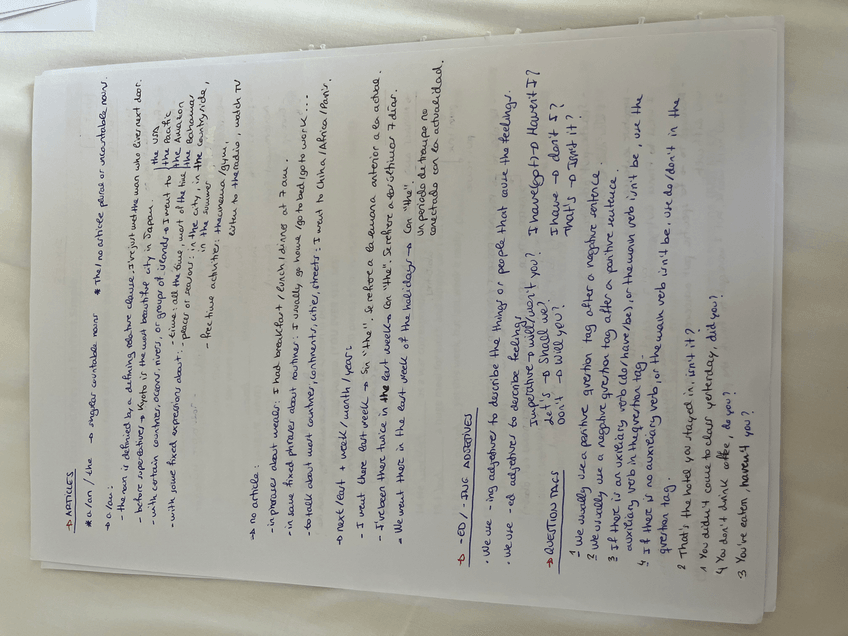 → ARTICLES
* a/an / the → singular countable nouns * The/no article plural or uncountable nouns.
→ a/an:
- the noun is defined by a defining relative clause. I've just met the man who lives next door.
- before superlatives → Kyoto is the most beautiful city in Japan.
- with certain countries, oceans, rivers, or groups of islands → I want to | the USA
| the Pacific
| the Amazon
| the Bahamas
- with some fixed expressions about: - time: all the time, most of the time
- places or seasons: in the city, in the countryside,
in the summer
- free time activities: the cinema/gym,
listen to the radio, watch TV
→ no article:
- in phrases about meals: I had breakfast/lunch/dinner at 7 am.
- in some fixed phrases about routines: I usually go home/go to bed/go to work...
- to talk about most countries, continents, cities, streets: I went to China/Africa/Paris.
→ next/last + week/month/year:
- I went there last week → Sin "the". Se refiere a la semana anterior a la actual.
- I've been there twice in the last week → Con "the". Se refiere a los últimos 7 días.
- We went there in the last week of the holidays → Con "the".
un periodo de tiempo no
conectado con la actualidad.
→ -ED / -ING ADJECTIVES
· We use -ing adjectives to describe the things or people that cause the feelings.
· We use -ed adjectives to describe feelings
→ QUESTION TAGS
Imperative → will/won't you?
Let's → Shall we?
Don't → Will you?
I have(got) → Haven't I?
I have → don't I?
That's → Isn't it?
1 We usually use a positive question tag after a negative sentence.
2 We usually use a negative question tag after a positive sentence.
3 If there is an auxiliary verb (do/have/be), or the main verb isn't be, we use the
auxiliary verb in the question tag.
4 If there is no auxiliary verb, or the main verb isn't be, we use do/don't in the
question tag.
2 That's the hotel you stayed in, isn't it?
1 You didn't come to class yesterday, did you?
4 You don't drink coffee, do you?
3 You've eaten, haven't you?